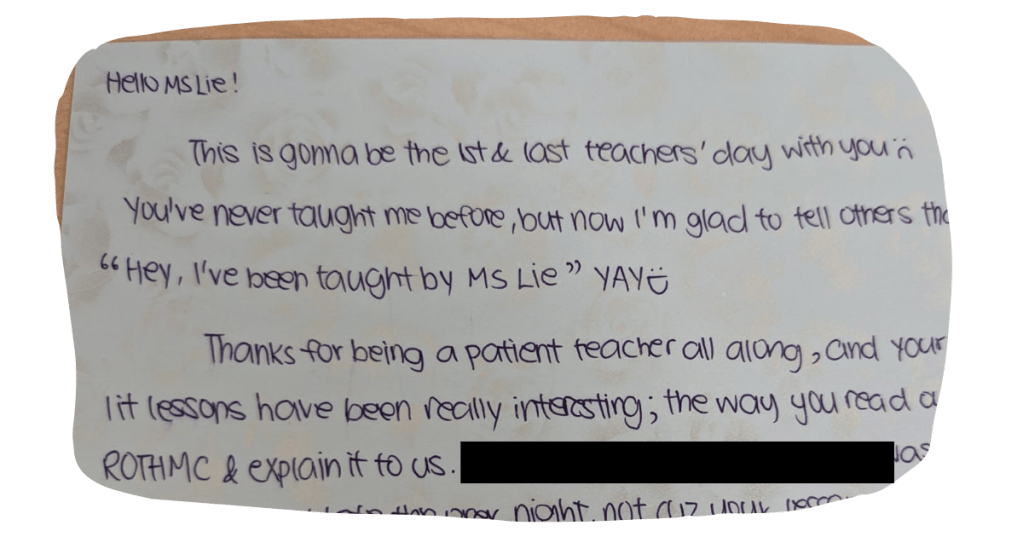 Hello Ms Lie!
This is gonna be the 1st & last teachers' day with you ಢ
You've never taught me before, but now I'm glad to tell others
"Hey, I've been taught by Ms Lie" YAY Ü
Thanks for being a patient teacher all along, and your
lit lessons have been really interesting; the way you read
ROTHMC & explain it to us.
night, not cuz your